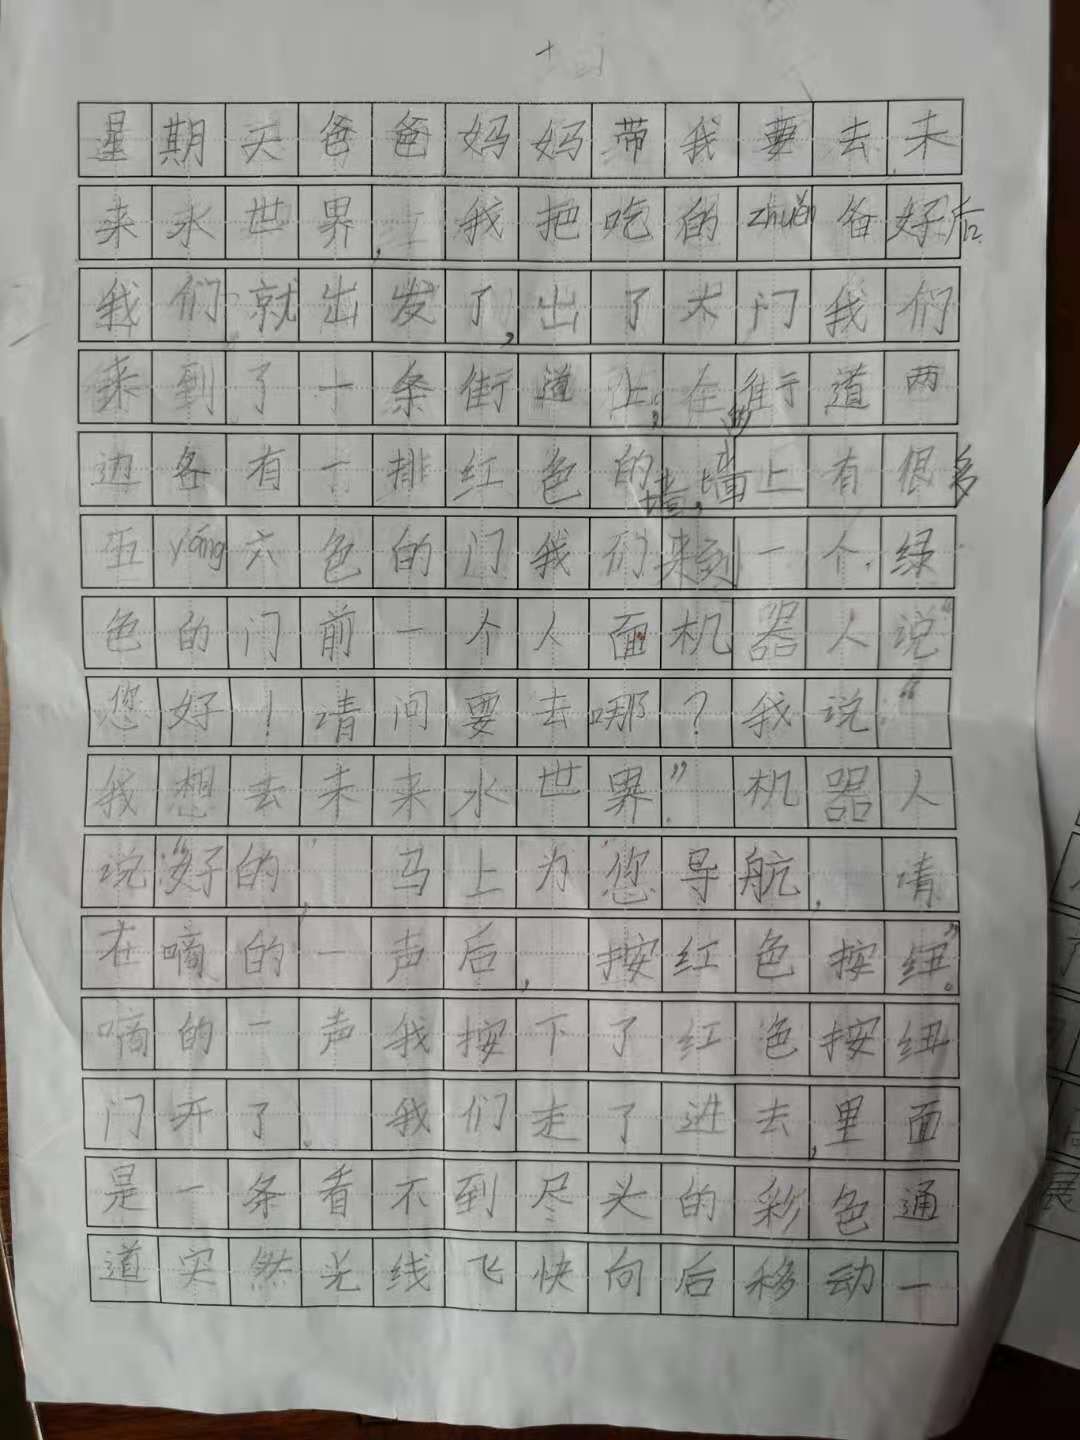 星期天爸爸妈妈带我要去未
来水世界,我把吃的zhuěn备好后
我们,就出发了,出了大门我们
来到了一条街道上,在街道的两
边各有一排红色的墙,墙上有很多
五yán六色的门我们来到一个绿
色的门前一个人面机器人说“
您好!请问要去哪?我说“
我想去未来水世界.”机器人
说“好的,马上为您导航,请
在嘀的一声后,按红色按纽”。
嘀的一声我按下了红色按纽
门开了.我们走了进去,里面
是一条看不到尽头的彩色通
道突然光线飞快向后移动一